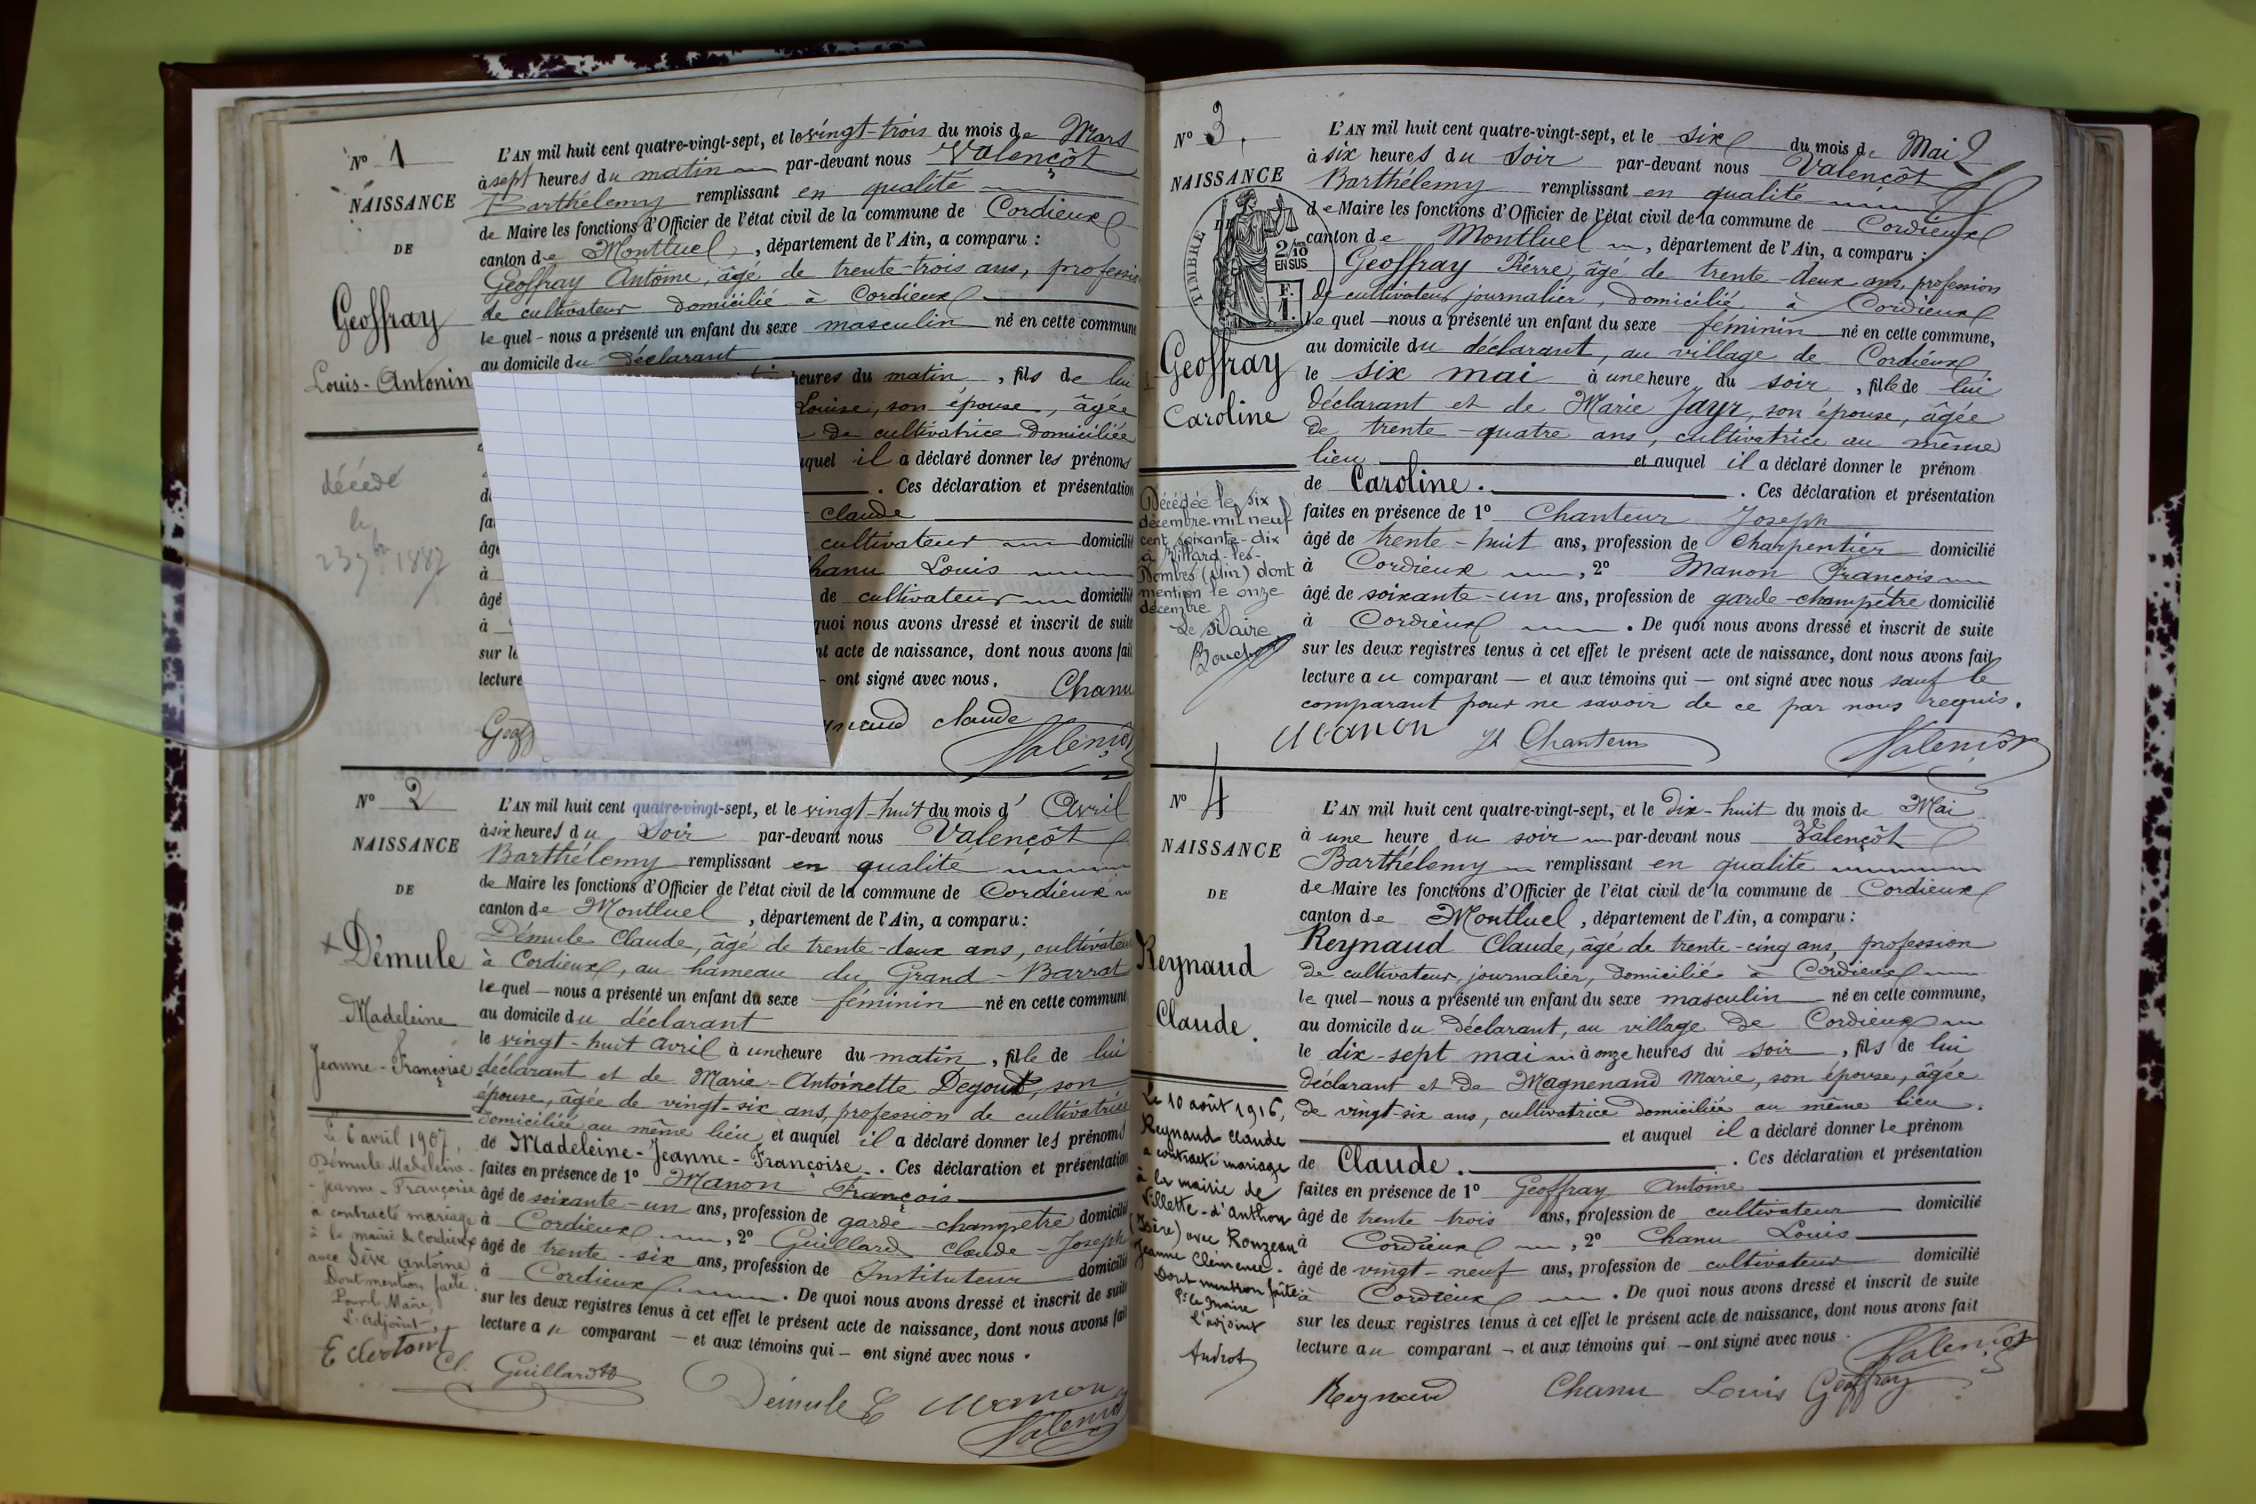 Nº 1
NAISSANCE
DE
Geoffray
Louis-Antonin
décédé
le
23 1887
L'AN mil huit cent quatre-vingt-sept, et le vingt-trois du mois de Mars
à sept heures du matin par-devant nous Valençôt
Barthélemy remplissant en qualité
de Maire les fonctions d'Officier de l'état civil de la commune de Cordieux
canton de Montluel, département de l'Ain, a comparu :
Geoffray Antoine, âgé de trente-trois ans, profession
de cultivateur domicilié à Cordieux
lequel - nous a présenté un enfant du sexe masculin né en cette commune
au domicile du déclarant
heures du matin, fils de lui
Louise, son épouse, âgée
de cultivatrice domiciliée
auquel il a déclaré donner les prénoms
. Ces déclaration et présentation
claude
cultivateur domicilié
âgé
à Chanu Louis
âgé de cultivateur domicilié
à quoi nous avons dressé et inscrit de suite
sur le acte de naissance, dont nous avons fait
lecture - ont signé avec nous. Chanu
claude
Valençot
Nº 2
NAISSANCE
DE
Démule
Madeleine
Jeanne-Françoise
Le 6 avril 1907
Démule Madeleine-
-Jeanne-Françoise
a contracté mariage
à la mairie de Cordieux
avec Sève antoine
Dont mention faite.
Pour le Maire,
L'adjoint,
L'AN mil huit cent quatre-vingt-sept, et le vingt-huit du mois d'Avril
à six heures du soir par-devant nous Valençôt
Barthélemy remplissant en qualité
de Maire les fonctions d'Officier de l'état civil de la commune de Cordieux
canton de Montluel, département de l'Ain, a comparu :
Démule Claude, âgé de trente-deux ans, cultivateur
à Cordieux, au hameau du Grand-Barrat
lequel - nous a présenté un enfant du sexe féminin né en cette commune
au domicile du déclarant
le vingt-huit avril à une heure du matin, fille de lui
déclarant et de Marie-Antoinette Degout, son
épouse, âgée de vingt-six ans, profession de cultivatrice
domiciliée au même lieu, et auquel il a déclaré donner les prénoms
de Madeleine-Jeanne-Françoise. Ces déclaration et présentation
faites en présence de 1º Manon François
âgé de soixante-un ans, profession de garde-champêtre domicilié
à Cordieux, 2º Guillard Claude-Joseph
âgé de trente-six ans, profession de Instituteur domicilié
à Cordieux. De quoi nous avons dressé et inscrit de suite
sur les deux registres tenus à cet effet le présent acte de naissance, dont nous avons fait
lecture au comparant - et aux témoins qui - ont signé avec nous.
Cl. Guillard Démule C Manon
Valençot
Nº 3.
NAISSANCE
DE
TIMBRE
2/10
EN SUS
F.
1.
Geoffray
Caroline
Décédée le six
décembre mil neuf
cent soixante-dix
à Villard-les-
Dombes (Ain) dont
mention le onze
décembre
Le Maire
2
L'AN mil huit cent quatre-vingt-sept, et le six du mois de Mai
à six heures du soir par-devant nous Valençôt
Barthélemy remplissant en qualité
de Maire les fonctions d'Officier de l'état civil de la commune de Cordieux
canton de Montluel, département de l'Ain, a comparu :
Geoffray Pierre, âgé de trente-deux ans, profession
de cultivateur journalier, domicilié à Cordieux
lequel - nous a présenté un enfant du sexe féminin né en cette commune,
au domicile du déclarant, au village de Cordieux,
le six mai à une heure du soir, fille de lui
déclarant et de Marie Jayr, son épouse, âgée
de trente-quatre ans, cultivatrice au même
lieu et auquel il a déclaré donner le prénom
de Caroline. . Ces déclaration et présentation
faites en présence de 1º Chanteur Joseph
âgé de trente-huit ans, profession de Charpentier domicilié
à Cordieux, 2º Manon François
âgé de soixante-un ans, profession de garde-champêtre domicilié
à Cordieux. De quoi nous avons dressé et inscrit de suite
sur les deux registres tenus à cet effet le présent acte de naissance, dont nous avons fait
lecture au comparant - et aux témoins qui - ont signé avec nous sauf le
comparant pour ne savoir de ce par nous requis.
Manon Jh Chanteur Valençot
Nº 4
NAISSANCE
DE
Reynaud
Claude.
Le 10 août 1916,
Reynaud Claude
a contracté mariage
à la mairie de
Villette-d'Anthon
(Isère) avec Ronzeau
Jeanne Clémence.
Dont mention faite.
Pr le Maire
L'adjoint
Audrot
L'AN mil huit cent quatre-vingt-sept, et le dix-huit du mois de Mai
à une heure du soir par-devant nous Valençôt
Barthélemy remplissant en qualité
de Maire les fonctions d'Officier de l'état civil de la commune de Cordieux
canton de Montluel, département de l'Ain, a comparu :
Reynaud Claude, âgé de trente-cinq ans, profession
de cultivateur, journalier, domicilié à Cordieux
lequel - nous a présenté un enfant du sexe masculin né en cette commune,
au domicile du déclarant, au village de Cordieux
le dix-sept mai à onze heures du soir, fils de lui
déclarant et de Magnenand Marie, son épouse, âgée
de vingt-six ans, cultivatrice domiciliée au même lieu.
et auquel il a déclaré donner le prénom
de Claude. . Ces déclaration et présentation
faites en présence de 1º Geoffray Antoine
âgé de trente trois ans, profession de cultivateur domicilié
à Cordieux, 2º Chanu Louis
âgé de vingt-neuf ans, profession de cultivateur domicilié
à Cordieux. De quoi nous avons dressé et inscrit de suite
sur les deux registres tenus à cet effet le présent acte de naissance, dont nous avons fait
lecture au comparant - et aux témoins qui - ont signé avec nous.
Valençot
Reynaud Chanu Louis Geoffray